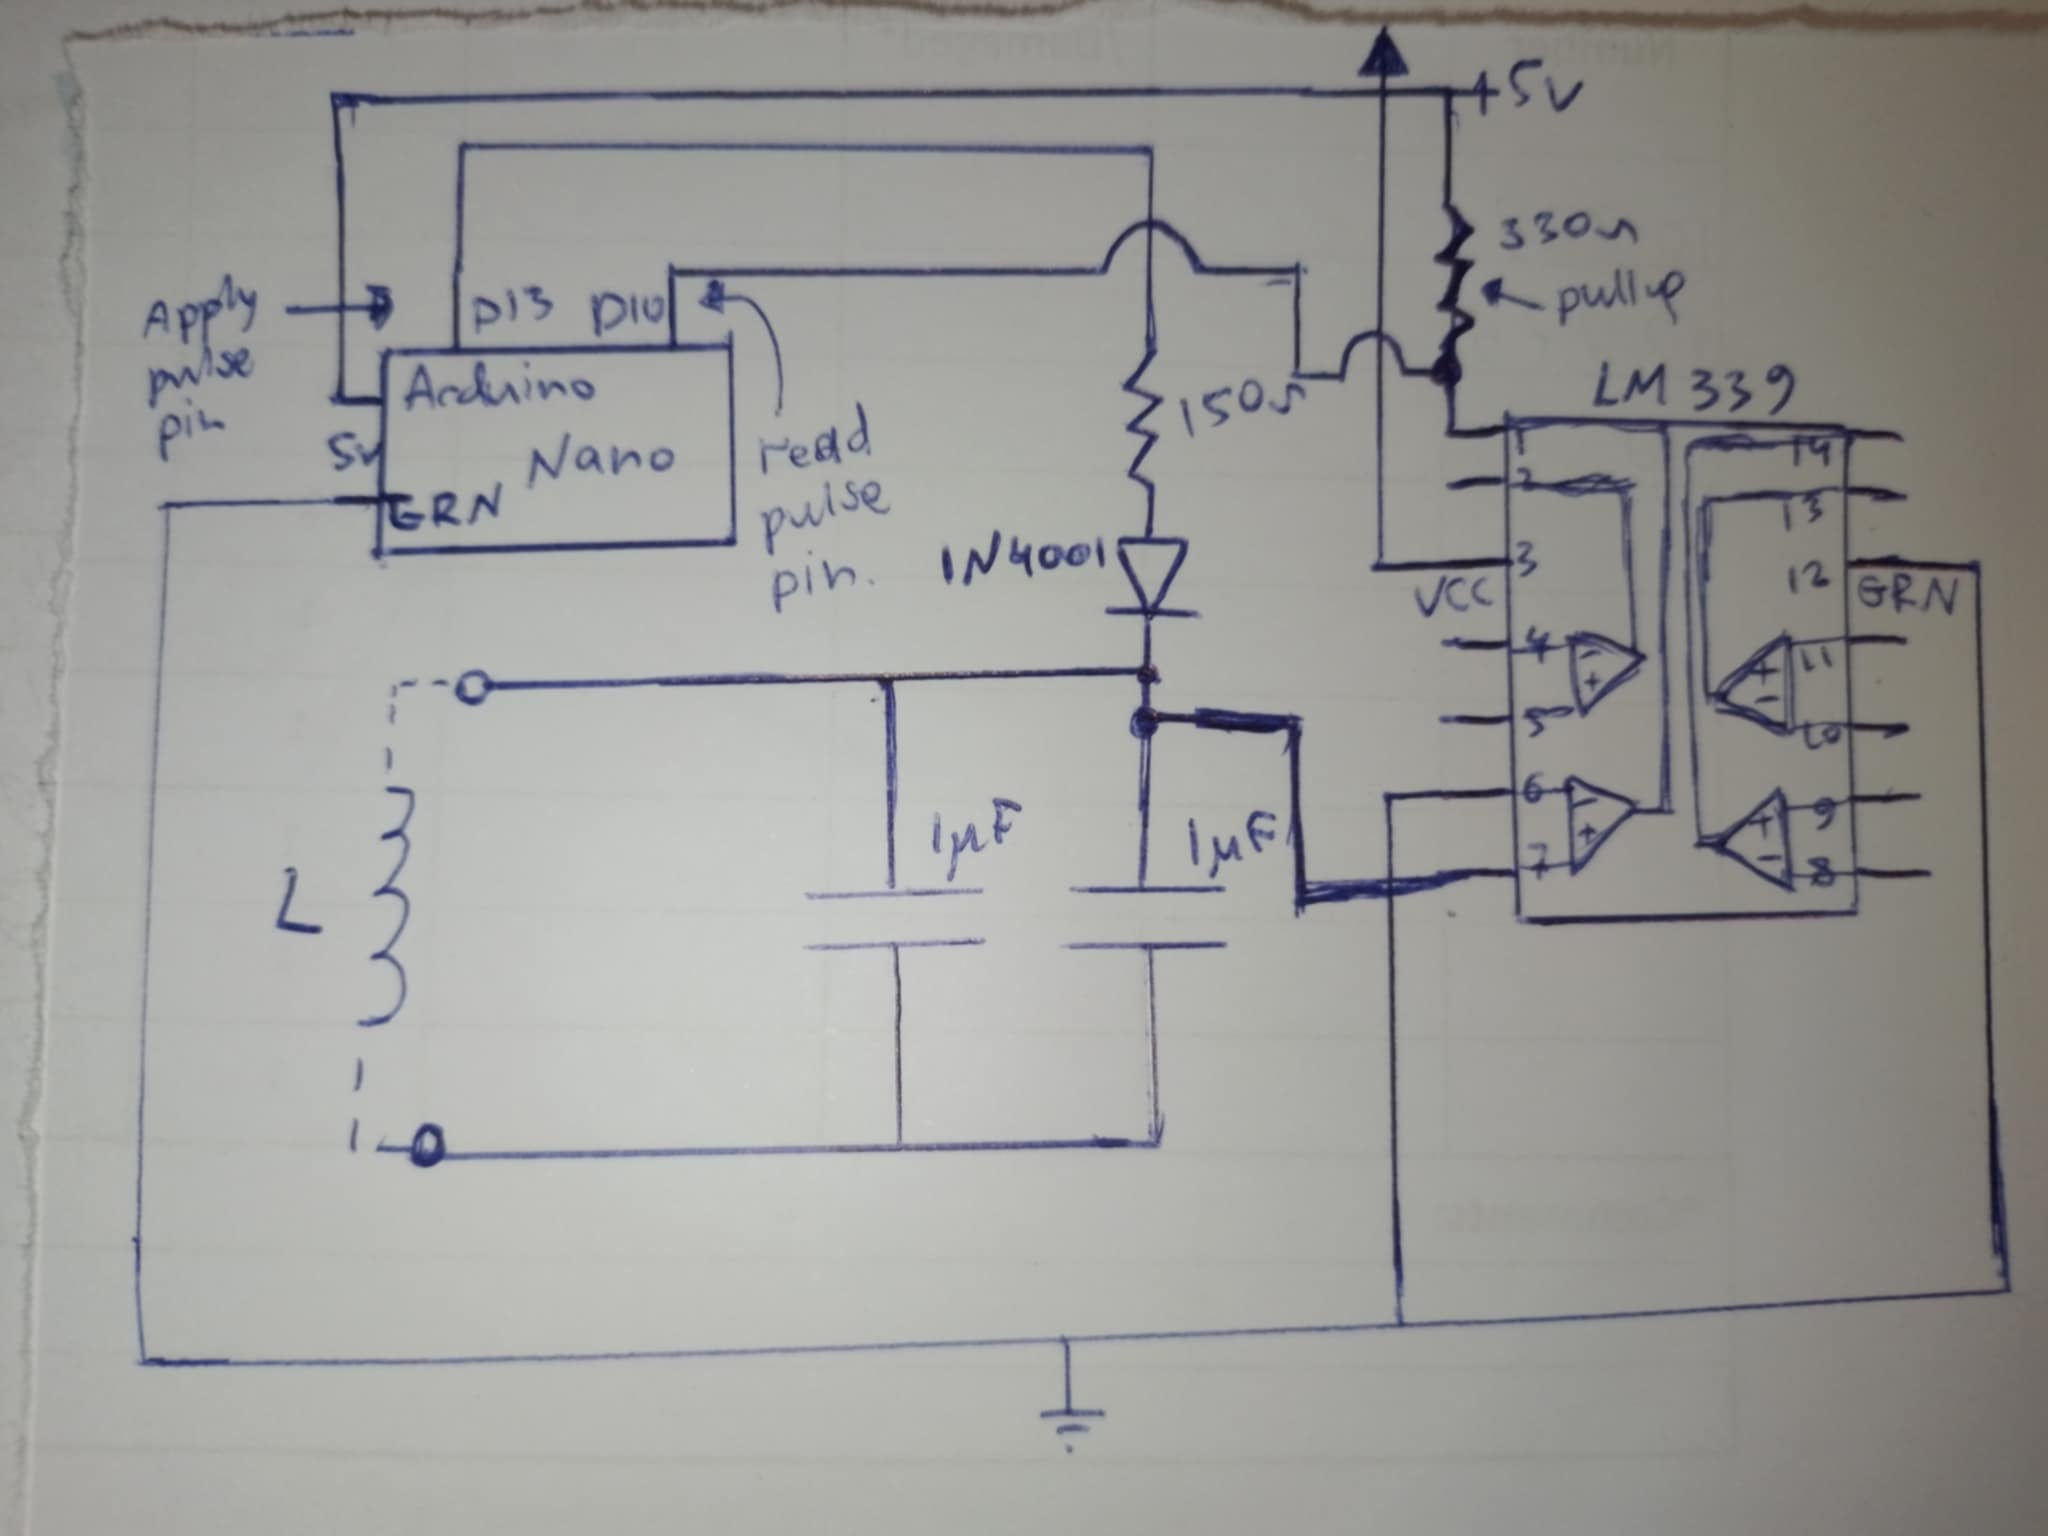 +5v
330Ω
pullup
Apply
pulse
pin
D13 D10
Arduino
Nano
5v
GRN
read
pulse
pin.
150Ω
LM 339
1N4001
VCC
GRN
1
2
3
4
5
6
7
14
13
12
11
10
9
8
-
+
-
+
+
-
+
-
L
1µF
1µF